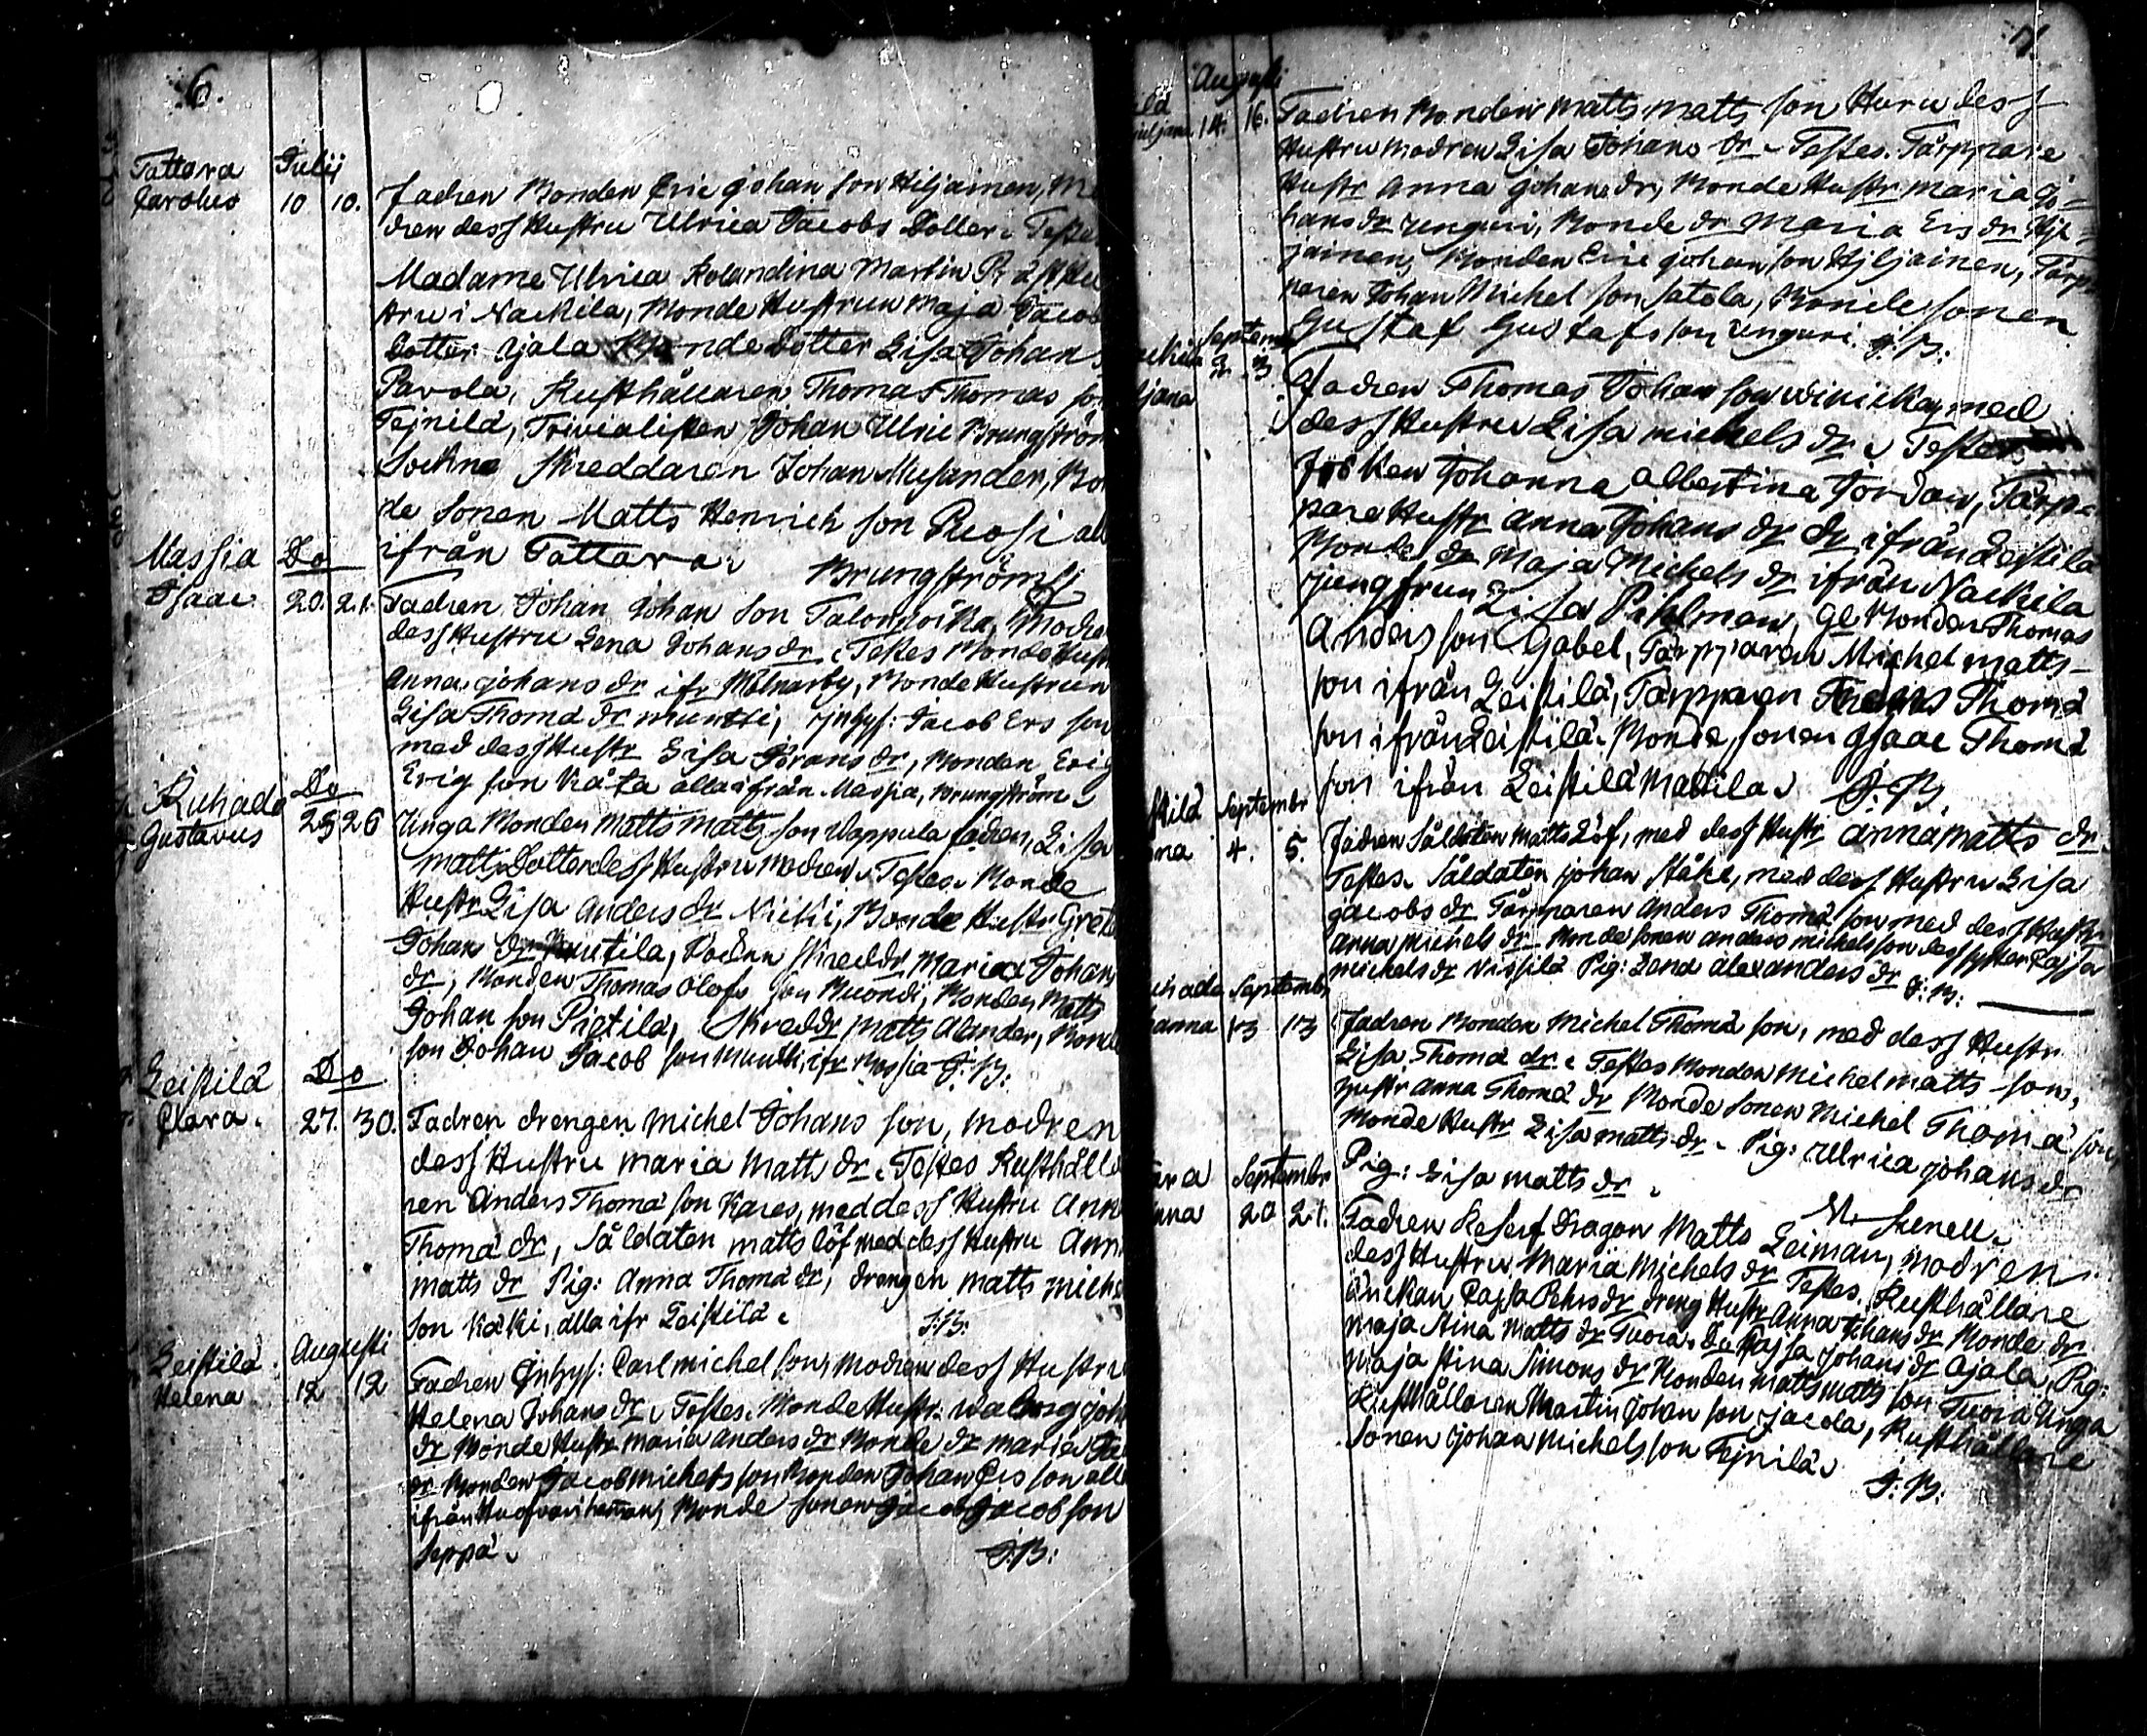 6.
Tattara Julij
Carolus 10 10. Fadren Bonden Eric Johan son Hiljainen, Mo
dren dess Hustru Ulrica Jacobs Dotter. Testes
Madame Ulrica Rolandina Martin Präst Hu
stru i Nackila, Bonde Hustrun Maja Jacob
Dotter Ojala Bonde Dotter Lisa Johans
Pavola, Rusthållaren Thomas Thomas son
Tejnilä, Trivialisten Johan Ulric Brungström
Sockne Skreddaren Johan Musander, Bon
de Sonen Matts Henrich son Ruosi all
ifrån Tattara. Brungström
Massia Do
Isaac 20. 21. Fadren Johan Johan son Talonpoika, Modre
dess Hustru Lena Johans dr. Testes Bonde Hustr
Anna Johans dr ifr Mälnarby, Bonde Hustrun
Lisa Thoma dr Muntti, Inhys: Jacob Ers son
med dess Hustr Lisa Jörans dr, Bonden Eric
Eric son Käta alla ifrån Massia, Brungström
Ruhade Do
Gustavus 25 26 Unga Bonden Matts Matts son Vappula fadren, Lisa
Matts Dotter dess Hustru modren. Testes. Bonde
Hustr Lisa Anders dr Nicki, Bonde Hustr Greta
Johans dr Knutila, Sockne Skreddr Maria Johans
dr, Bonden Thomas Olofs son Muondi, Bonden Matts
Johan son Pietilä, Skreddr Matts Alander, Bonde
son Johan Jacob son Muntti, ifr Massia J:B:
Leistilä Do
Clara. 27. 30. Fadren drengen Michel Johans son, modren
dess Hustru Maria Matts dr. Testes Rusthålla
ren Anders Thoma son Kares, med dess Hustru Anna
Thoma dr, Såldaten Matts Löf med dess Hustru Anna
Matts dr Pig: Anna Thoma dr, drengen Matts Miche
son Käki, alla ifr Leistilä. J:B:
Leistilä Augusti
Helena 12 12 Fadren Inhys: Carl Michel son, Modren dess Hustru
Helena Johans dr. Testes. Bonde Hustr. Walborg Joh
dr Bonde Hustr Maria Anders dr Bonde dr Maria
dr Bonden Jacob Michels son Bonden Johan Ers son all
ifrån Bonde sonen Jacob Jacob son
Seppä. J:B:
7.
Augusti
14. 16. Fadren Bonden Matts Matts son Huru dess
Hustru modren Lisa Johans dr. Testes. Tårppare
Hustr Anna Johans dr, Bonde Hustr Maria Jo=
hans dr Unguri, Bonde dr Maria Ers dr Hil=
jainen, Bonden Eric Johan son Hiljainen, Tårp
paren Johan Michel son Satola, Bonde sonen
Gustaf Gustafs son Unguri. J:B:
Septemb
3. 3. Fadren Thomas Johan son Winicka, med
dess Hustru Lisa Michels dr. Testes
Fröken Johanna Albertina Jordan, Tårp=
pare Hustr Anna Johans dr ifrån Leistilä
Bonde dr Maja Michels dr ifrån Nackila
Jungfrun Lisa Pihlman, Gl Bonden Thomas
Anders son Gabel, Tårpparen Michel Matts=
son ifrån Leistilä, Tårpparen Thomas Thoma
son ifrån Leistilä. Bonde sonen Isaac Thoma
son ifrån Leistilä Mattila. J:B.
stilä Septembr
nna 4. 5. Fadren Såldaten Matts Löf, med dess Hustr Anna Matts dr.
Testes. Såldaten Johan Ståhl, med dess Hustru Lisa
Jacobs dr Tårpparen Anders Thoma son med dess Hustr
Anna Michels dr Bonde sonen Anders Michels son dess syster Cajsa
Michels dr Nissilä Pig: Lena Alexanders dr J:B:
uhade Septembr
hanna 13 13 Fadren Bonden Michel Thoma son, med dess Hustr
Lisa Thoma dr. Testes Bonden Michel Matts son,
Hustr Anna Thoma dr Bonde sonen Michel Thoma son
Bonde Hustr Lisa Matts dr. Pig: Ulrica Johans dr
Pig: Lisa Matts dr.
ara Septembr
nna 20 21. Fadren Reserf Dragon Matts Leiman, modren
dess Hustru Maria Michels dr Testes. Rusthållare
Änckan Cajsa Pehrs dr dreng Hustr Anna Johans dr Bonde dr
Maja Stina Matts dr Tuora. Do Cajsa Johans dr Ojala, Pig:
Maja Stina Simons dr Bonden Matts Matts son Tuora Unga
Rusthållaren Martin Johan son Jacola, Rusthållare
Sonen Johan Michels son Tejnilä.
J:B: